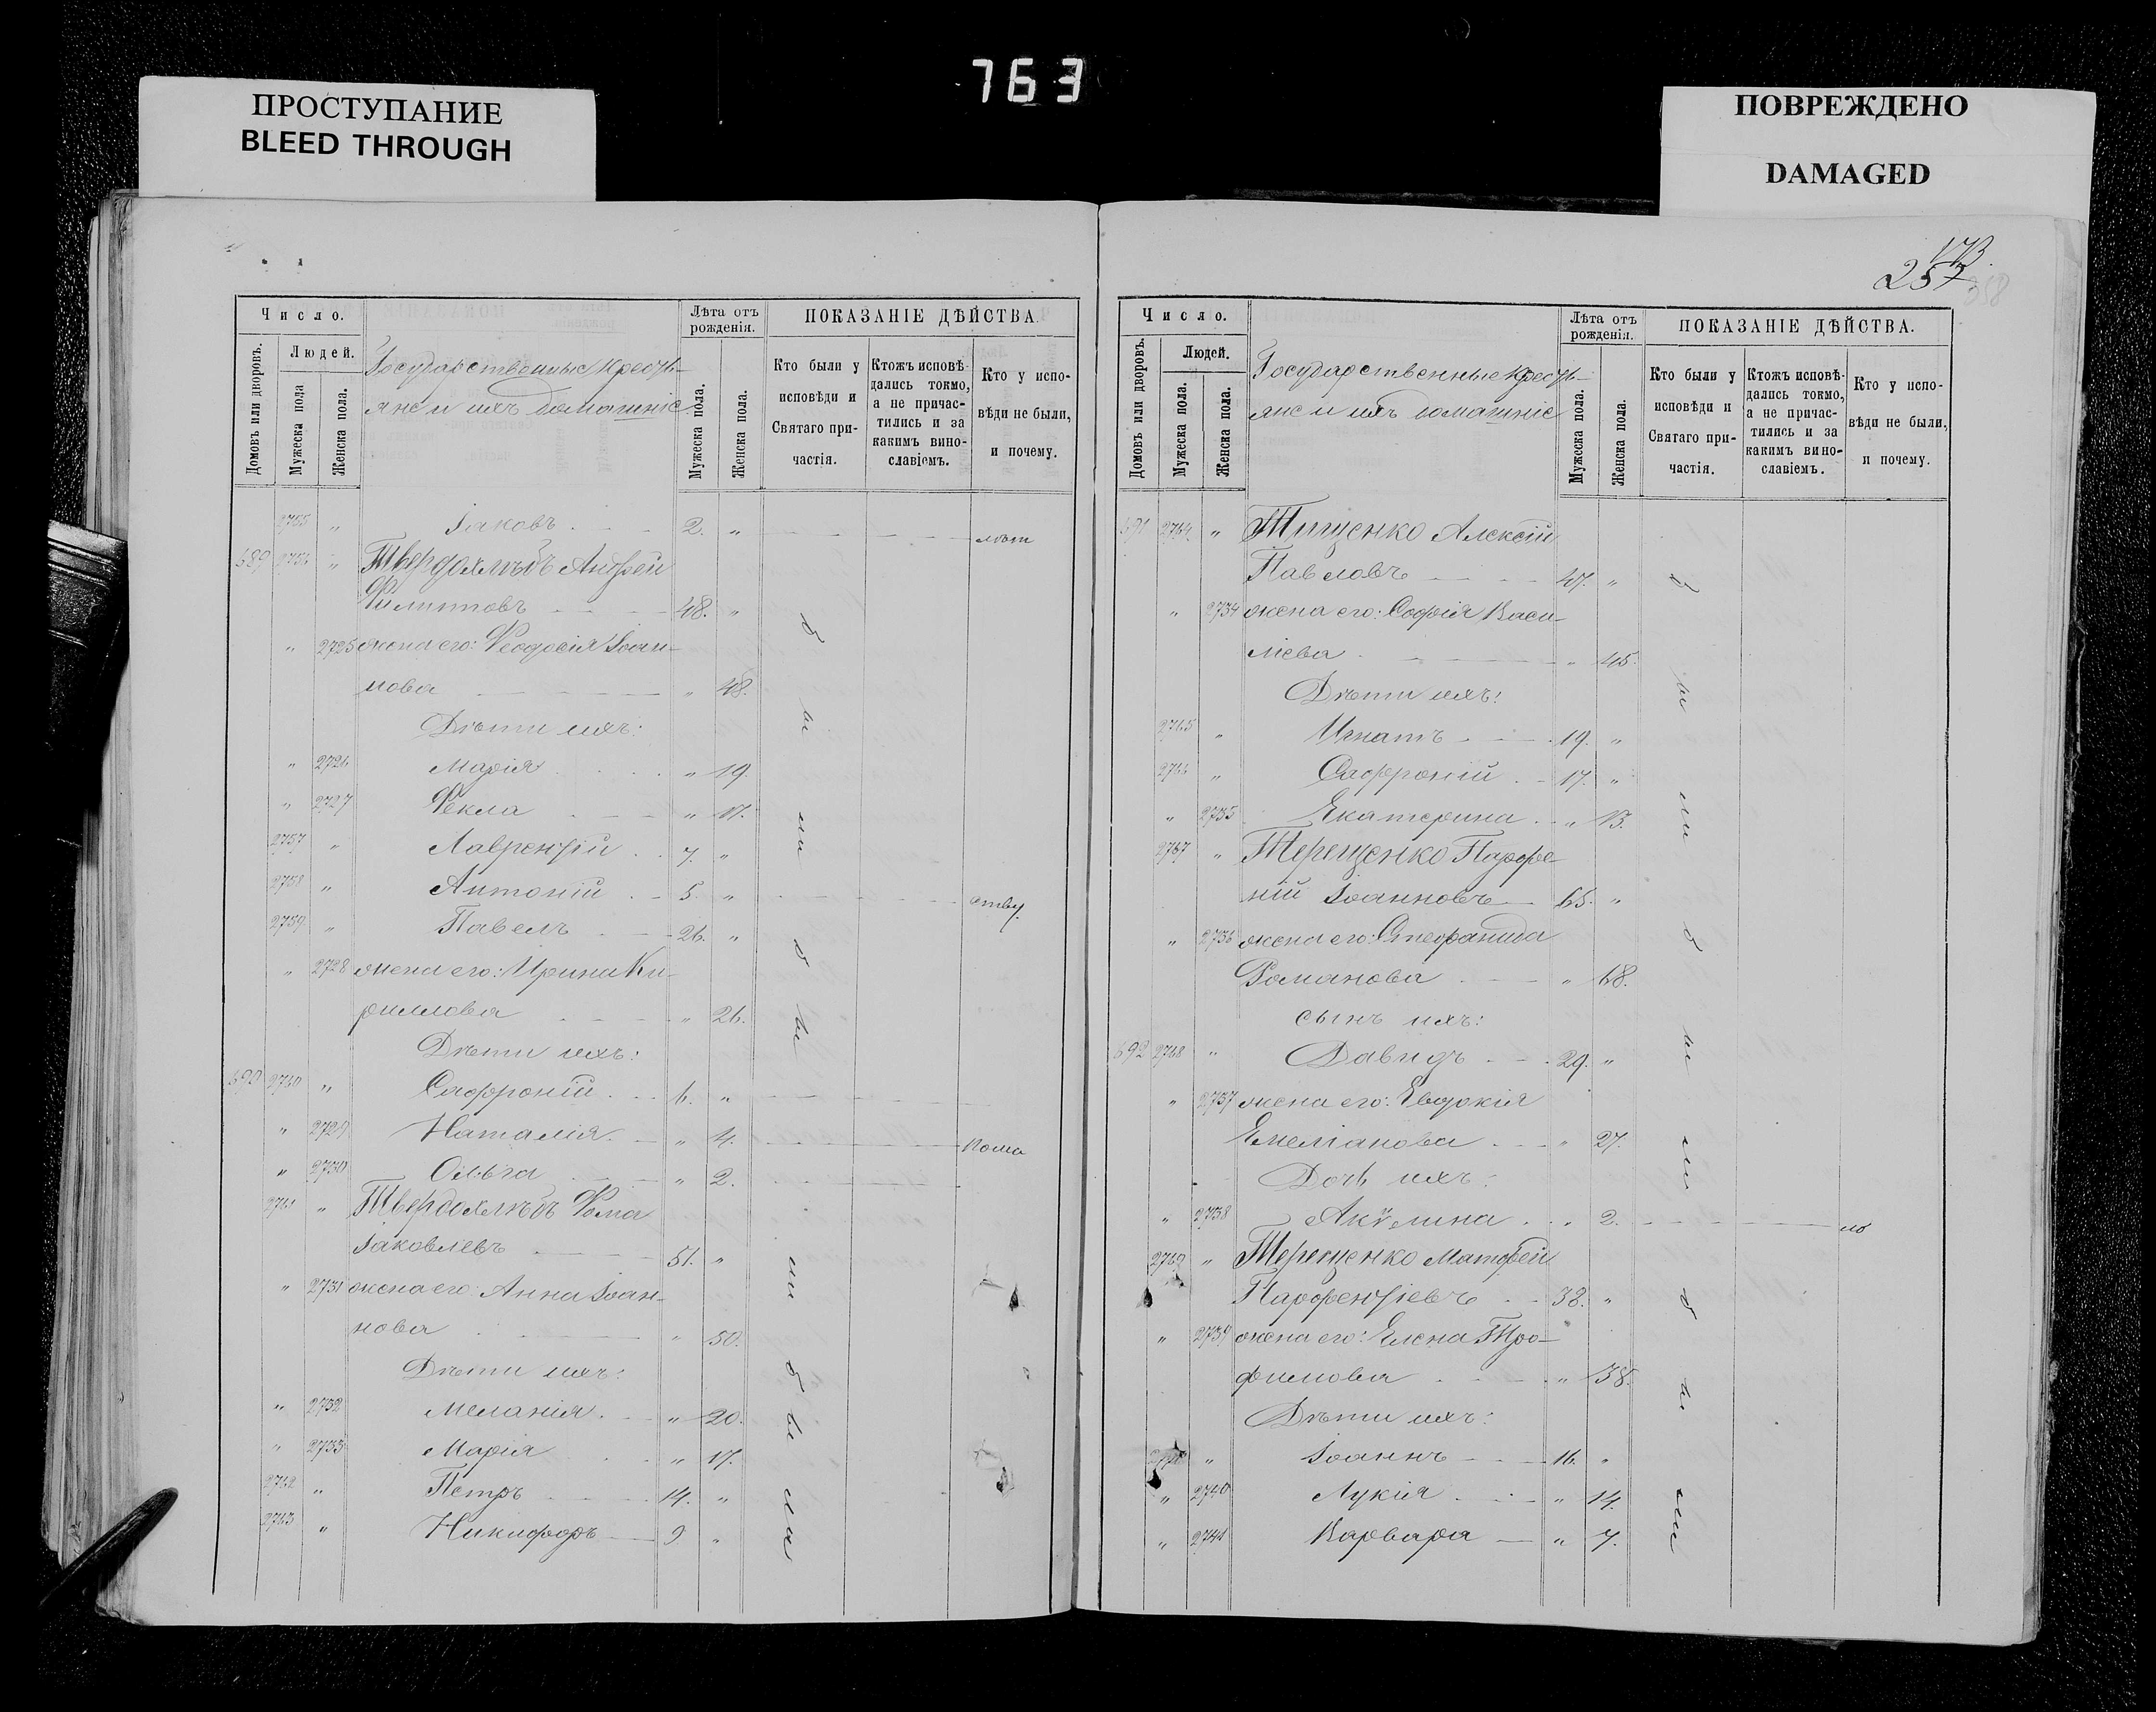 763
ПРОСТУПАНИЕ
BLEED THROUGH
ПОВРЕЖДЕНО
DAMAGED
Число.
Домовъ или дворовъ.
Людей.
Мужеска пола
Женска пола.
Государственные Кресть-
яне и ихъ домашніе
Лѣта отъ рожденія.
Мужеска пола.
Женска пола.
ПОКАЗАНІЕ ДѢЙСТВА.
Кто были у исповѣди и Святаго при-частія.
Ктожъ исповѣ-дались токмо, а не причас-тились и за какимъ вино-славіемъ.
Кто у испо-вѣди не были, и почему.
2755 " Іаковъ 2. "
689 2756 " Твердохлѣбъ Андрей
Филипповъ 48. "
" 2725 жена его: Феодосія Іоан-
нова " 48.
Дѣти ихъ:
" 2726 Марія " 19.
" 2727 Фекла " 17.
2757 " Лаврентій 7. "
2758 " Антоній 5. " ству
2759 " Павелъ 26. "
" 2728 жена его: Ирина Ки-
риллова " 26.
Дѣти ихъ:
690 2760 " Сафроній 6. "
" 2729 Наталія " 4.
" 2730 Ольга " 2.
2761 " Твердохлѣбъ Фома
Іаковлевъ 51. "
" 2731 жена его: Анна Іоан-
нова " 50.
Дѣти ихъ:
" 2732 Меланія " 20.
" 2733 Марія " 17.
2762 " Петръ 14. "
2763 " Никифоръ 9 "
были были были были
257
Число.
Домовъ или дворовъ.
Людей.
Мужеска пола.
Женска пола.
Государственные Кресть-
яне и ихъ домашніе
Лѣта отъ рожденія.
Мужеска пола.
Женска пола.
ПОКАЗАНІЕ ДѢЙСТВА.
Кто были у исповѣди и Святаго при-частія.
Ктожъ исповѣ-дались токмо, а не причас-тились и за какимъ вино-славіемъ.
Кто у испо-вѣди не были, и почему.
691 2764. " Тищенко Алексій
Павловъ 47. "
" 2734 жена его: Софія Васи-
ліева " 45.
Дѣти ихъ:
2765 " Игнатъ 19. "
2766 " Сафроній 17. "
" 2735 Екатерина " 13.
2767 " Терещенко Парфе-
ній Іоанновъ 65. "
" 2736 жена его: Стефанида
Романова " 68.
сынъ ихъ:
692 2768 " Давидъ 29. "
" 2737 жена его: Евдокія
Емеліанова " 27.
Дочь ихъ:
" 2738 Акѵлина " 2.
2769 " Терещенко Матфей
Парфентіевъ 38. "
" 2739 жена его: Елена Тро-
фимова " 38.
Дѣти ихъ:
" Іоаннъ 16. "
" 2740 Лукія " 14.
" 2741 Варвара " 7.
были были были